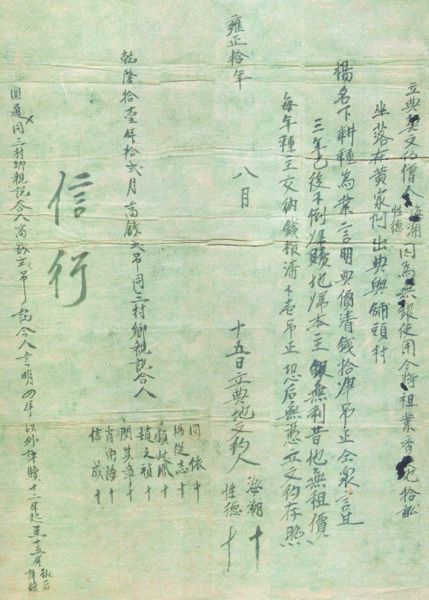 立典契文约僧人海潮性德因為無銀使用今将祖業香火地拾畝
坐落在黄家门出典與鋪頭村
楊名下耕種為業言明典價清錢拾津吊正仝衆言定
三年已後不倒浔贖地浔本王銀無利昔地無租價
每年種王交納錢粮清不壱吊正恐后無憑立文約存照
雍正拾年
八月
十五日立典地文約人海潮十性德十
乾隆拾壹年拾弍月高錢弍吊同三村鄉親説合人
同依十
楊從志十
趙之禎十
閆其
肖南海十
信成十
信行
圆通同三村鄉親説合人高錢弍吊説合人言明四年以外許贖十二年起至十五年